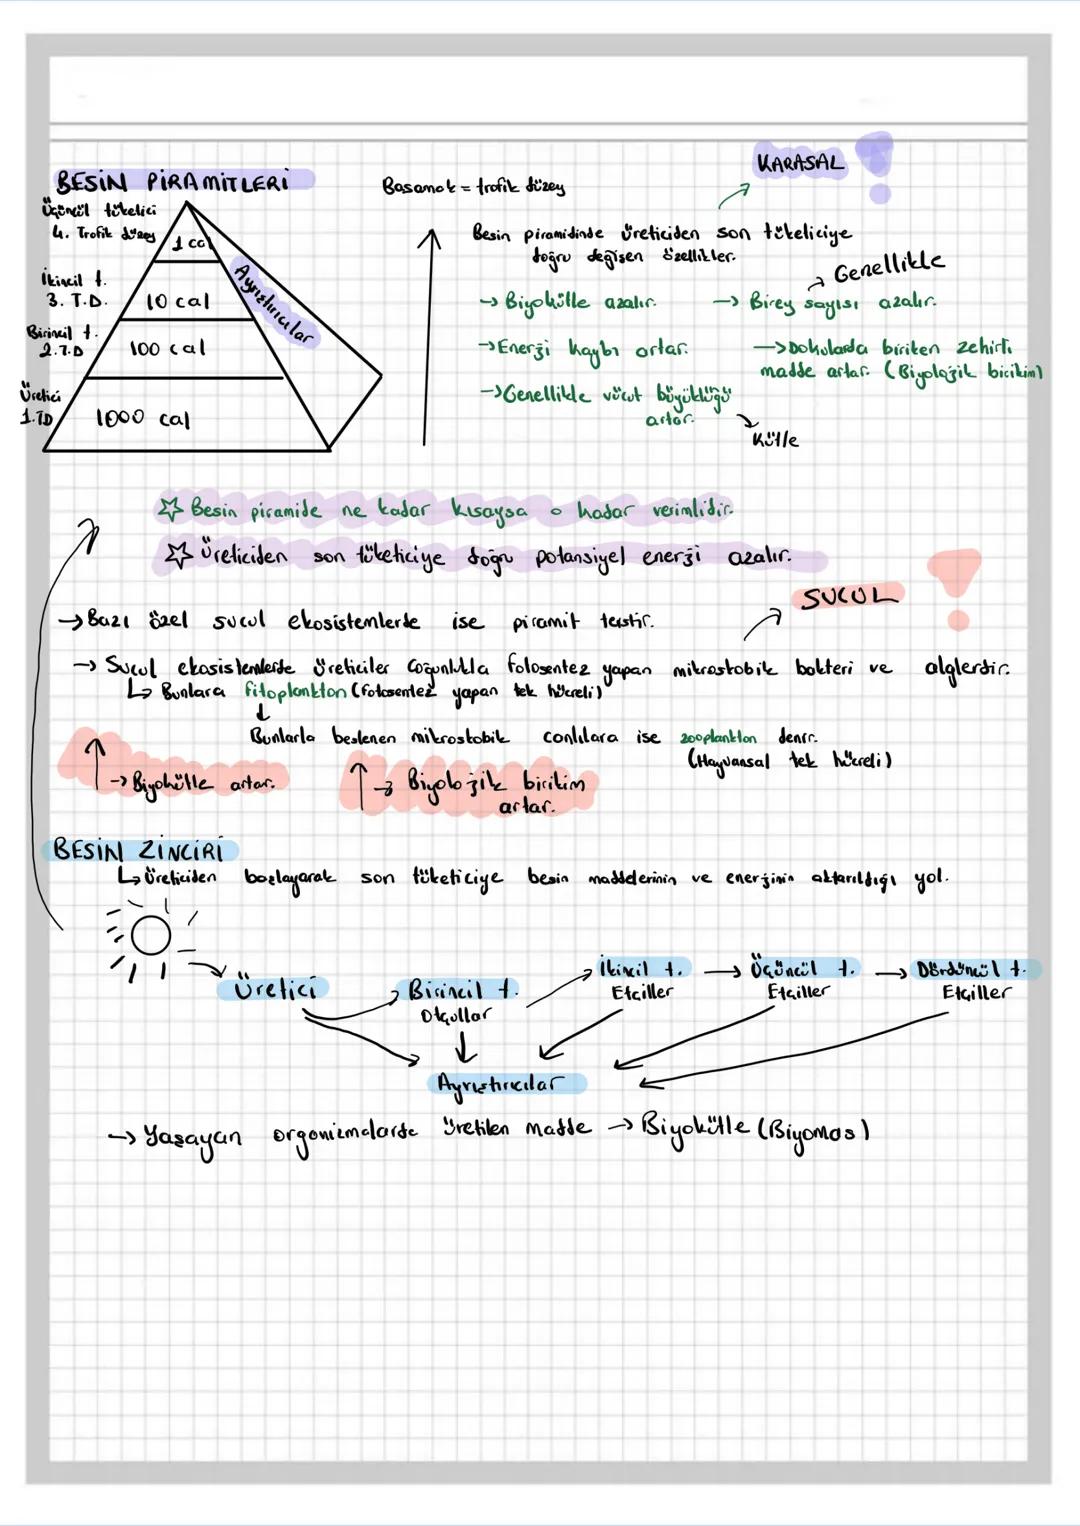 BESİN PİRAMİTLERİ
Üçüncül tüketici
4. Trofik düzey
1 cal
İkincil t.
3. T.D.
10 cal
Birincil t.
2.T.D
100 cal
Üretici
1.TD
1000 cal
Ayrıştırıcılar
Basamak = trofik düzey
KARASAL !
Besin piramidinde üreticiden son tüketiciye
doğru değişen özellikler.
→ Biyokütle azalır.
→ Birey sayısı azalır.
Genellikle
→ Enerji kaybı artar.
→ Dokularda biriken zehirli
madde artar. (Biyolojik birikim)
→ Genellikle vücut büyüklüğü
artar.
Kütle
☆ Besin piramide ne kadar kısaysa o kadar verimlidir.
☆ Üreticiden son tüketiciye doğru potansiyel enerji azalır.
SUCUL !
→ Bazı özel sucul ekosistemlerde ise piramit terstir.
→ Sucul ekosistemlerde üreticiler çoğunlukla fotosentez yapan mikroskobik bakteri ve alglerdir.
↳ Bunlara fitoplankton (fotosentez yapan tek hücreli)
↓
Bunlarla beslenen mikroskobik canlılara ise zooplankton denir.
(Hayvansal tek hücreli)
↑ → Biyokütle artar.
↑ → Biyolojik birikim
artar.
BESİN ZİNCİRİ
↳ Üreticiden başlayarak son tüketiciye besin maddelerinin ve enerjinin aktarıldığı yol.
Üretici
Birincil t.
Otçullar
İkincil t.
Etçiller
→ Üçüncül t.
Etçiller
→ Dördüncül t.
Etçiller
Ayrıştırıcılar
→ Yaşayan organizmalarda üretilen madde → Biyokütle (Biyomas)